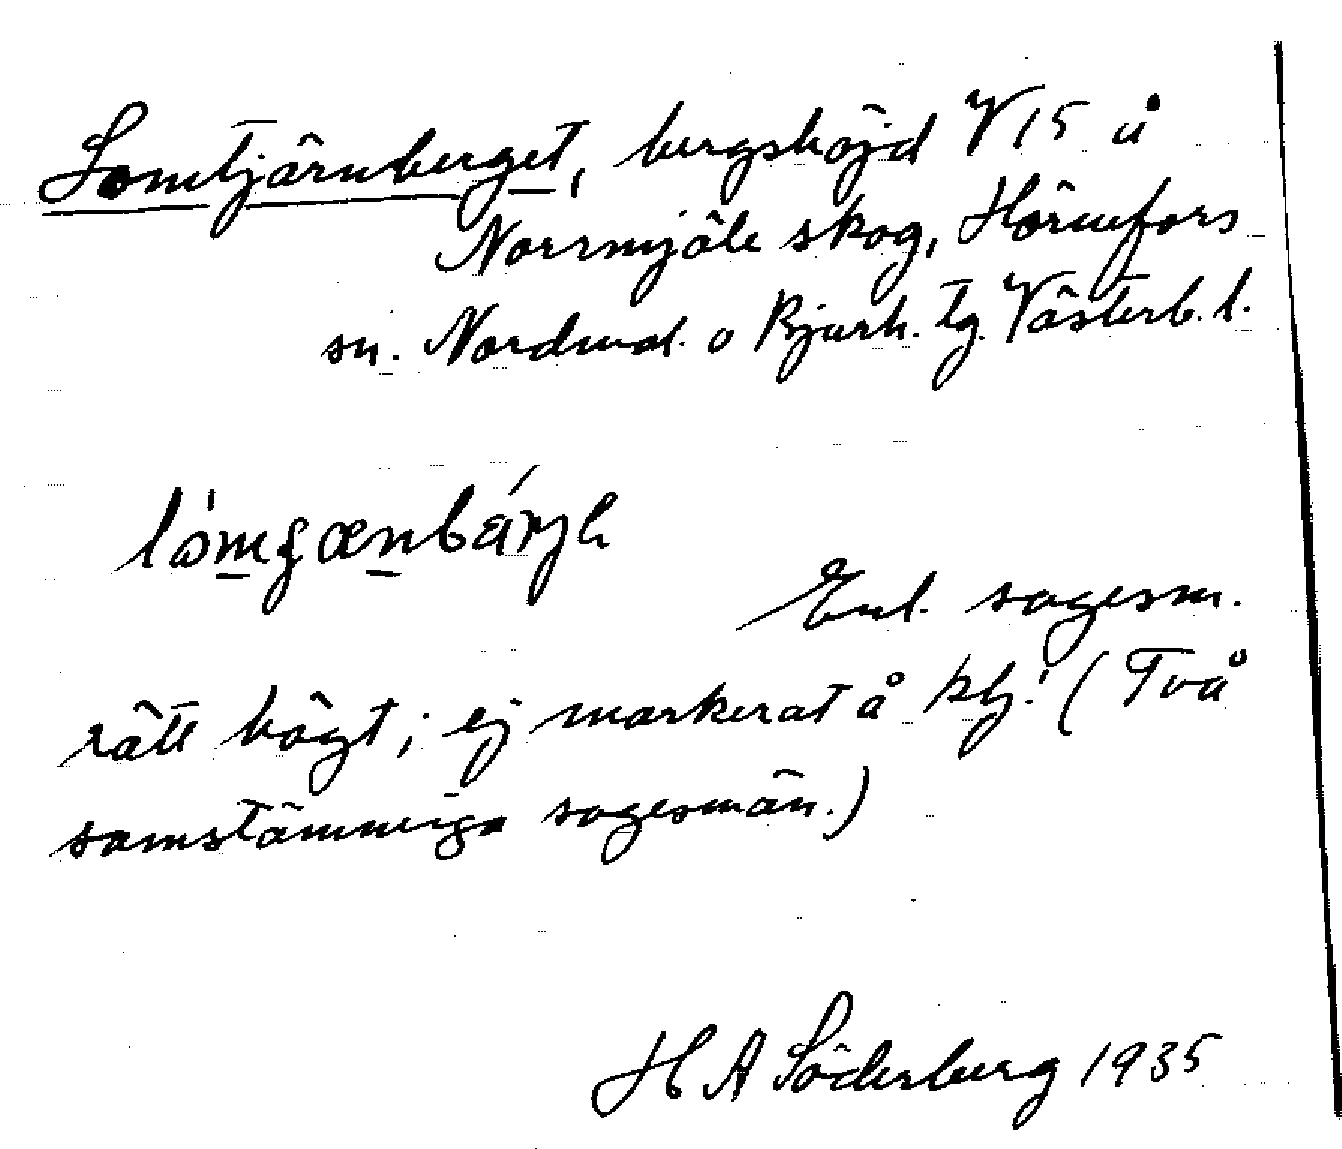 Lomtjärnberget, bergshöjd V 15 å
Norrmjöle skog, Hörnefors
sn. Nordmal. o Bjurh. tg. Västerb. l.
Enl. sagesm.
rätt högt; ej markerat å kbl.! (Två
samstämmiga sagesmän.)
H A Söderberg 1935